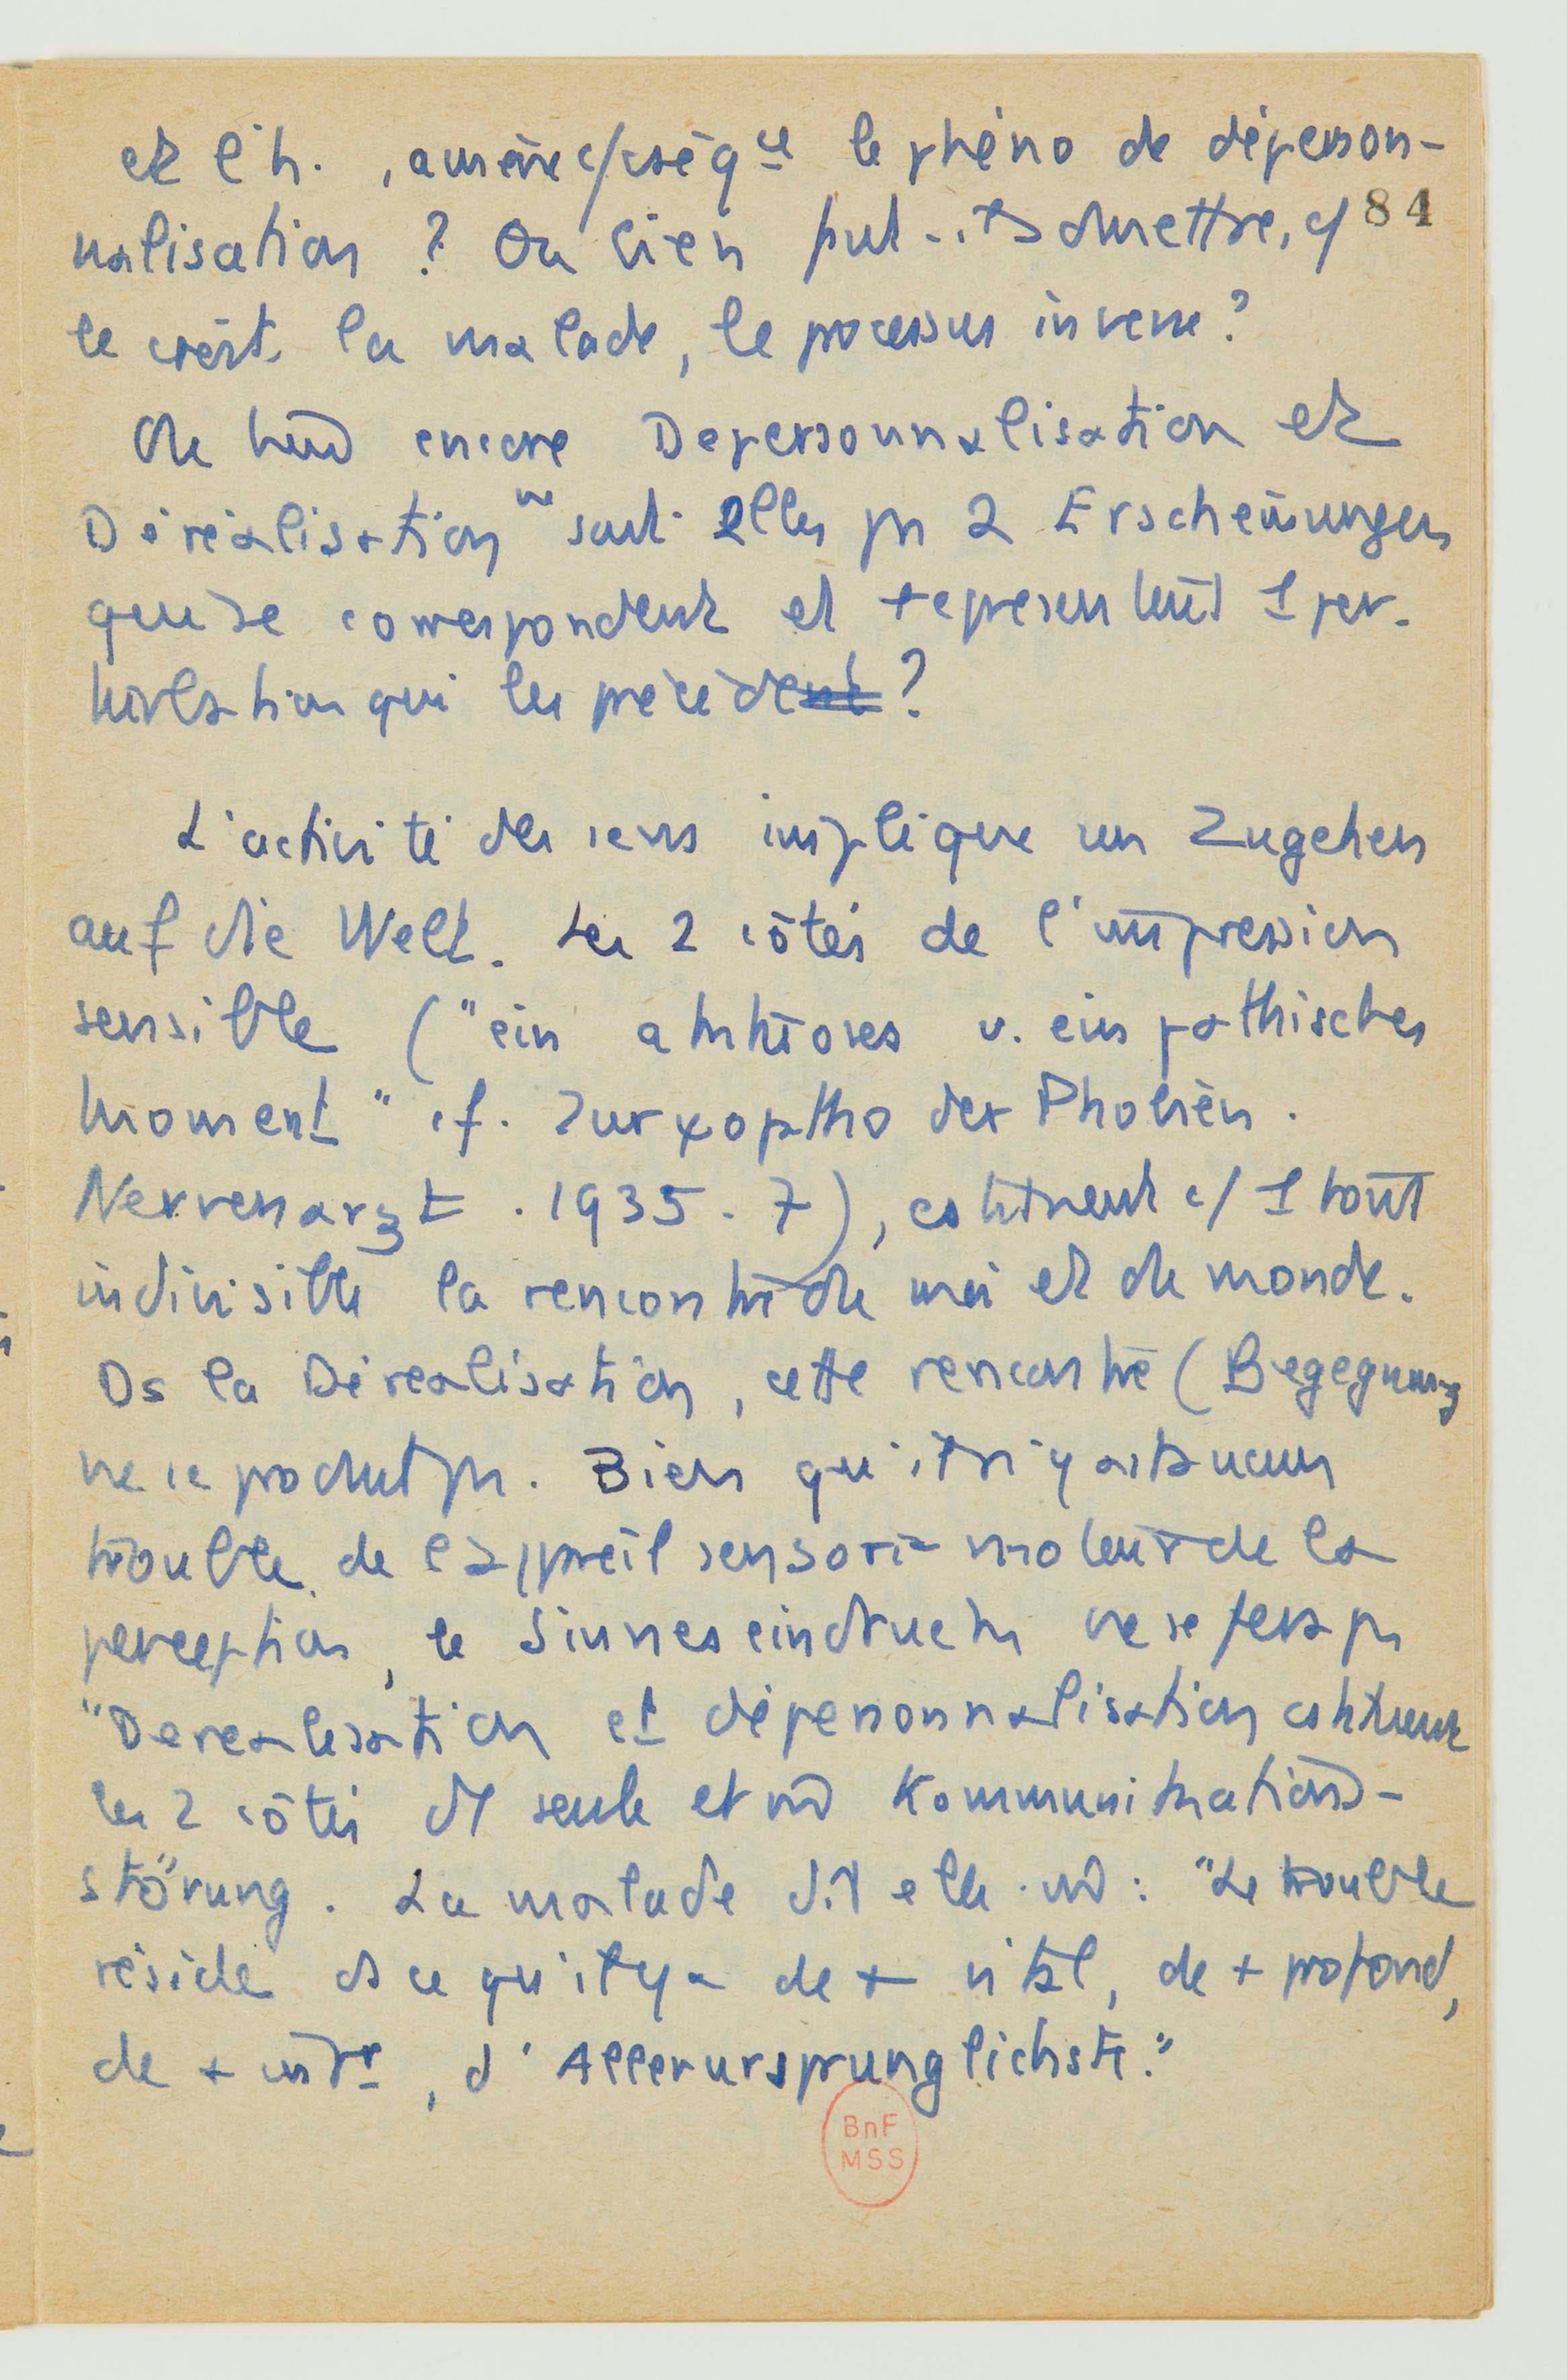 et l'h. , amène c/ cséq ce le phéno de déperson-
84
nalisation ? Ou bien put-il admettre, c/
le croit la malade, le processus inverse ?
Ou bien encore Depersonnalisation et
Déréalisation ne sont elles ps 2 Erscheinungen
qui se correspondent et représentent 1 per-
turbation qui les précèdent ?
L'activité des sens implique un Zugehen
auf die Welt. Les 2 côtés de l'impression
sensible ("ein aktives u. ein pathisches
Moment" cf. Zur ψoptho der Phobien.
Nervenarzt . 1935 . 7), cstituent c/ 1 tout
indivisible la rencontre du moi et du monde.
Ds la Déréalisation, cette rencontre (Begegnung
ne se produit ps. Bien qu'il n'y ait aucun
trouble de l'appareil sensori-moteur de la
perception, le Sinneseindruck ne se fera ps
"Derealisation et dépersonnalisation cstituent
les 2 côtés d'1 seule et m̂ Kommunikations-
störung. La malade dit elle-m̂ : "Le trouble
réside ds ce qu'il y a de + vital, de + profond,
de + , d'Allerursprunglichste."
BnF
MSS